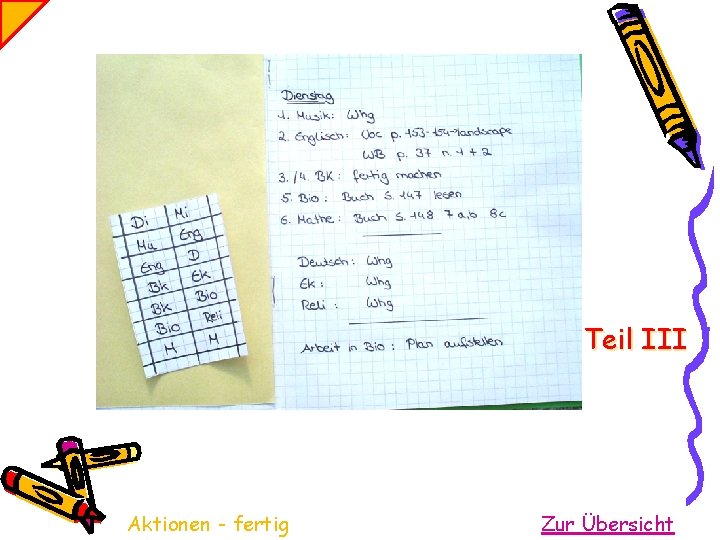 Dienstag
1. Musik: Whg
2. Englisch: Voc p. 153-154 →landscape
WB p. 37 n. 1 + 2
3./4. BK: fertig machen
5. Bio: Buch S. 147 lesen
6. Mathe: Buch S. 148 7 a,b 8c
Deutsch: Whg
Ek: Whg
Reli: Whg
Arbeit in Bio: Plan aufstellen
Di Mi
Mu Eng
Eng D
Bk Ek
Bk Bio
Bio Reli
M M
Teil III
Aktionen - fertig
Zur Übersicht